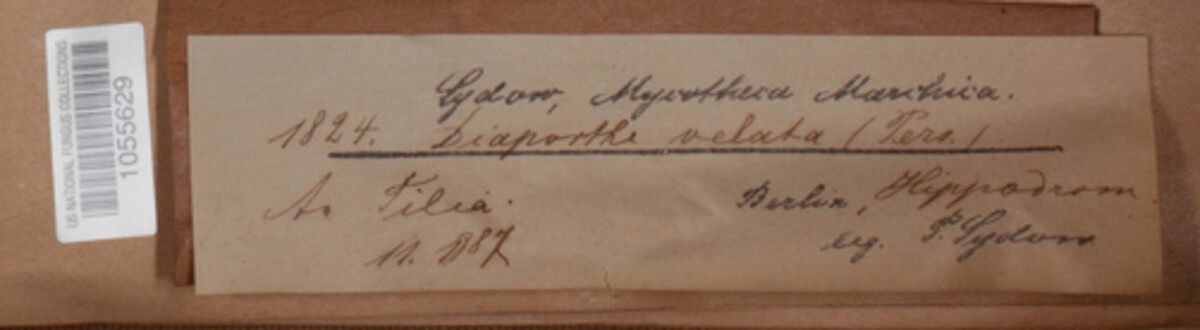 US NATIONAL FUNGUS COLLECTIONS
1055629
Sydow, Mycotheca Marchica.
1824. Diaporthe velata (Pers.)
An Tilia.
Berlin, Hippodrom.
11. 887
leg. P. Sydow.